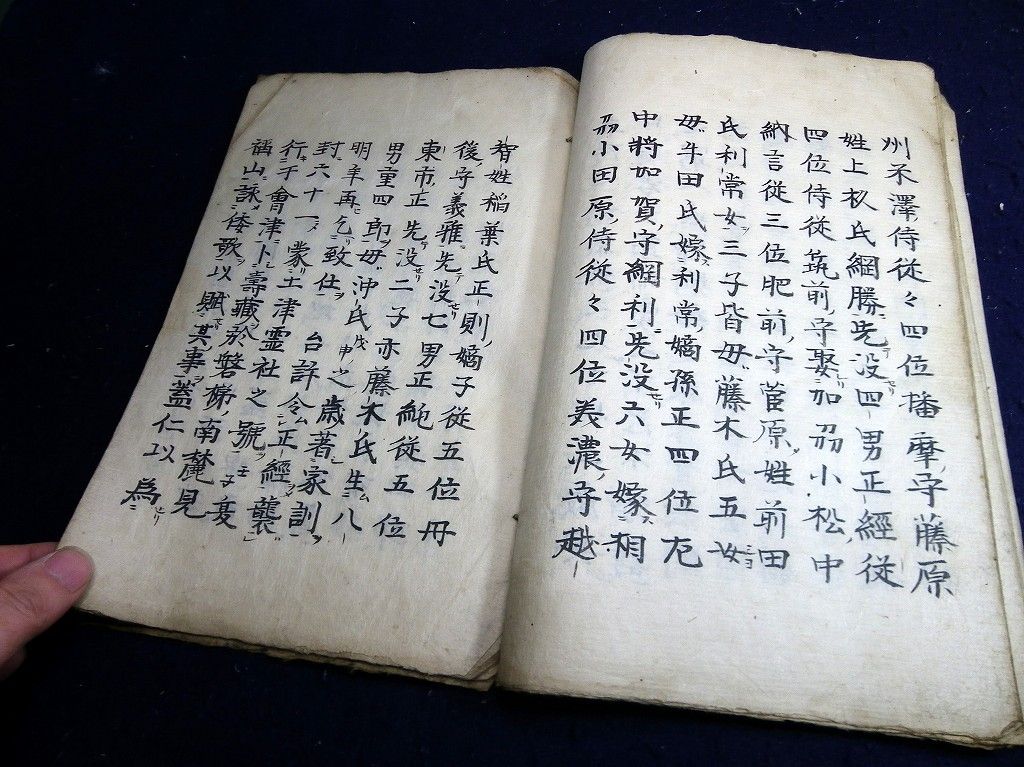 州米澤侍従々四位播摩守藤原
姓上杦氏綱勝先没四男正經従
四位侍従筑前守娶加刕小松中
納言従三位肥前守菅原姓前田
氏利常女三子皆毋藤木氏五女
毋牛田氏嫁利常嫡孫正四位左
中将加賀守綱利先没六女嫁相
刕小田原侍従々四位美濃守越
智姓稲葉氏正則嫡子従五位丹
後守義雅先没七男正純従五位
東市正先没二子亦藤木氏生八
男重四郎毋沖氏戊申之歳著家訓
明年再乞致仕 台許令正經襲
封六十一蒙土津霊社之號壬子夏
行于會津卜壽藏於磐梯南麓見
稱山詠倭歌以賦其事蓋仁以為